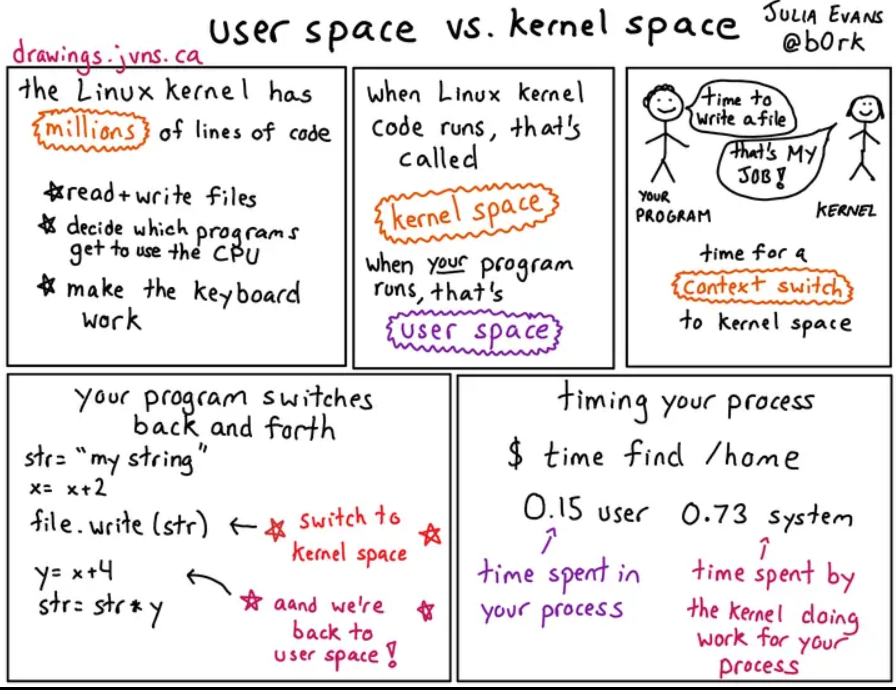 user space vs. kernel space
JULIA EVANS
@b0rk
drawings.jvns.ca
the Linux kernel has
millions of lines of code
☆ read + write files
☆ decide which programs
get to use the CPU
☆ make the keyboard
work
when Linux kernel
code runs, that's
called
kernel space
when your program
runs, that's
user space
time to
write a file
that's MY
JOB!
YOUR
PROGRAM
KERNEL
time for a
context switch
to kernel space
your program switches
back and forth
str= "my string"
x= x+2
file.write(str) ← ☆ switch to ☆
kernel space
y= x+4
str= str * y
☆ aand we're ☆
back to
user space!
timing your process
$ time find /home
0.15 user 0.73 system
time spent in
your process
time spent by
the kernel doing
work for your
process